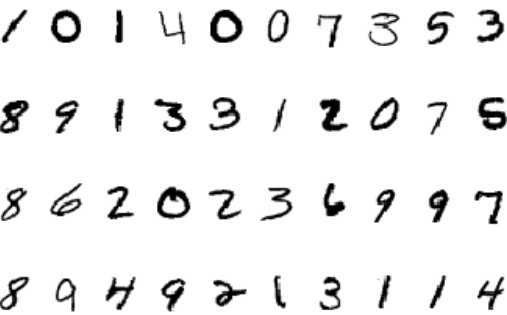 1 0 1 4 0 0 7 3 5 3
8 9 1 3 3 1 2 0 7 5
8 6 2 0 2 3 6 9 9 7
8 9 4 9 2 1 3 1 1 4